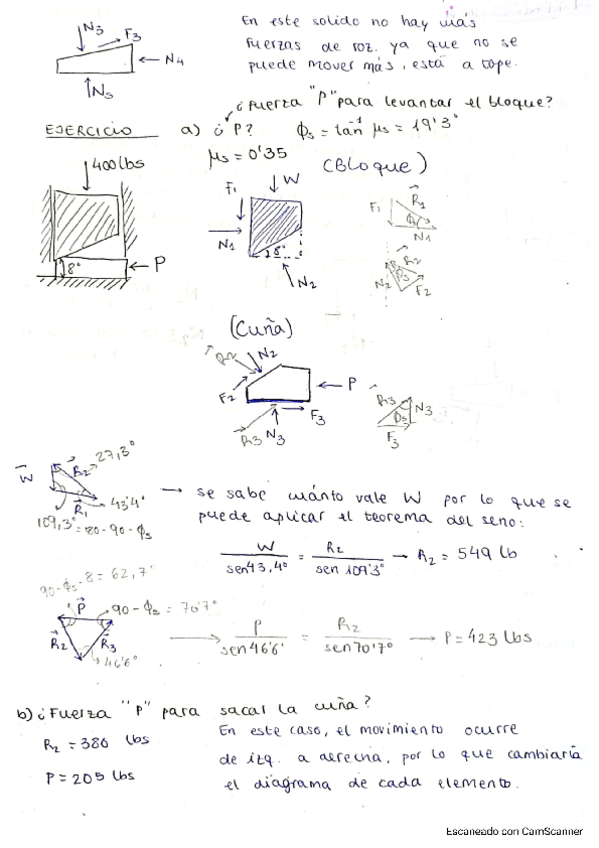 N3
F3
N4
N5
En este solido no hay más
fuerzas de roz. ya que no se
puede mover más, está a tope.
¿Fuerza "P" para levantar el bloque?
EJERCICIO a) ¿P? ϕs = tan⁻¹ μs = 19'3°
μs = 0'35
(Bloque)
400 lbs
8°
P
F1
W
N1
8°
N2
F1
R1
ϕs
N1
R2
ϕs
N2
F2
(Cuña)
R2
N2
F2
P
F3
R3
N3
R3
ϕs
N3
F3
W
R2
27,3°
R1
43'4°
109,3° = 80-90-ϕs
→ se sabe cuánto vale W por lo que se
puede aplicar el teorema del seno:
W / sen 43,4° = R2 / sen 109'3° → R2 = 549 lb
90-ϕs-8 = 62,7°
P
90-ϕs = 70'7°
R2
R3
46'6°
P / sen 46'6° = R2 / sen 70'7° → P = 423 lbs
b) ¿Fuerza "P" para sacar la cuña?
R2 = 380 lbs
P = 205 lbs
En este caso, el movimiento ocurre
de izq. a derecha, por lo que cambiaría
el diagrama de cada elemento.
Escaneado con CamScanner